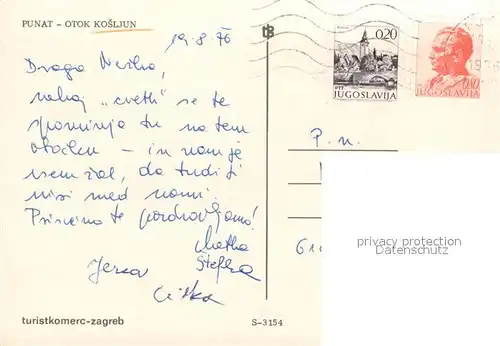 PUNAT – OTOK KOŠLJUN
19.8.76
Draga
nekaj „cvetk" se te
spominja tu na tem
otočku – in nam je
vsem žal, da tudi ti
nisi med nami.
Prisrčno te pozdravljamo!
Metka
Jerca Štefka
Cirka
turistkomerc-zagreb
S-3154
tb
0,20
PTT
JUGOSLAVIJA
0,10
JUGOSLAVIJA
P. n.
privacy protection
Datenschutz